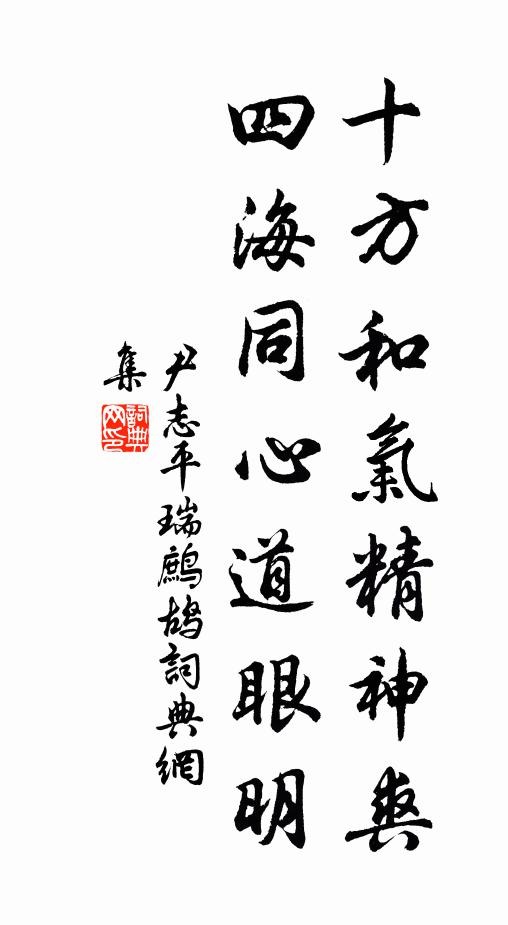 十方和氣精神爽
四海同心道眼明
尹志平瑞鷓鴣詞典網
集
詞典网印